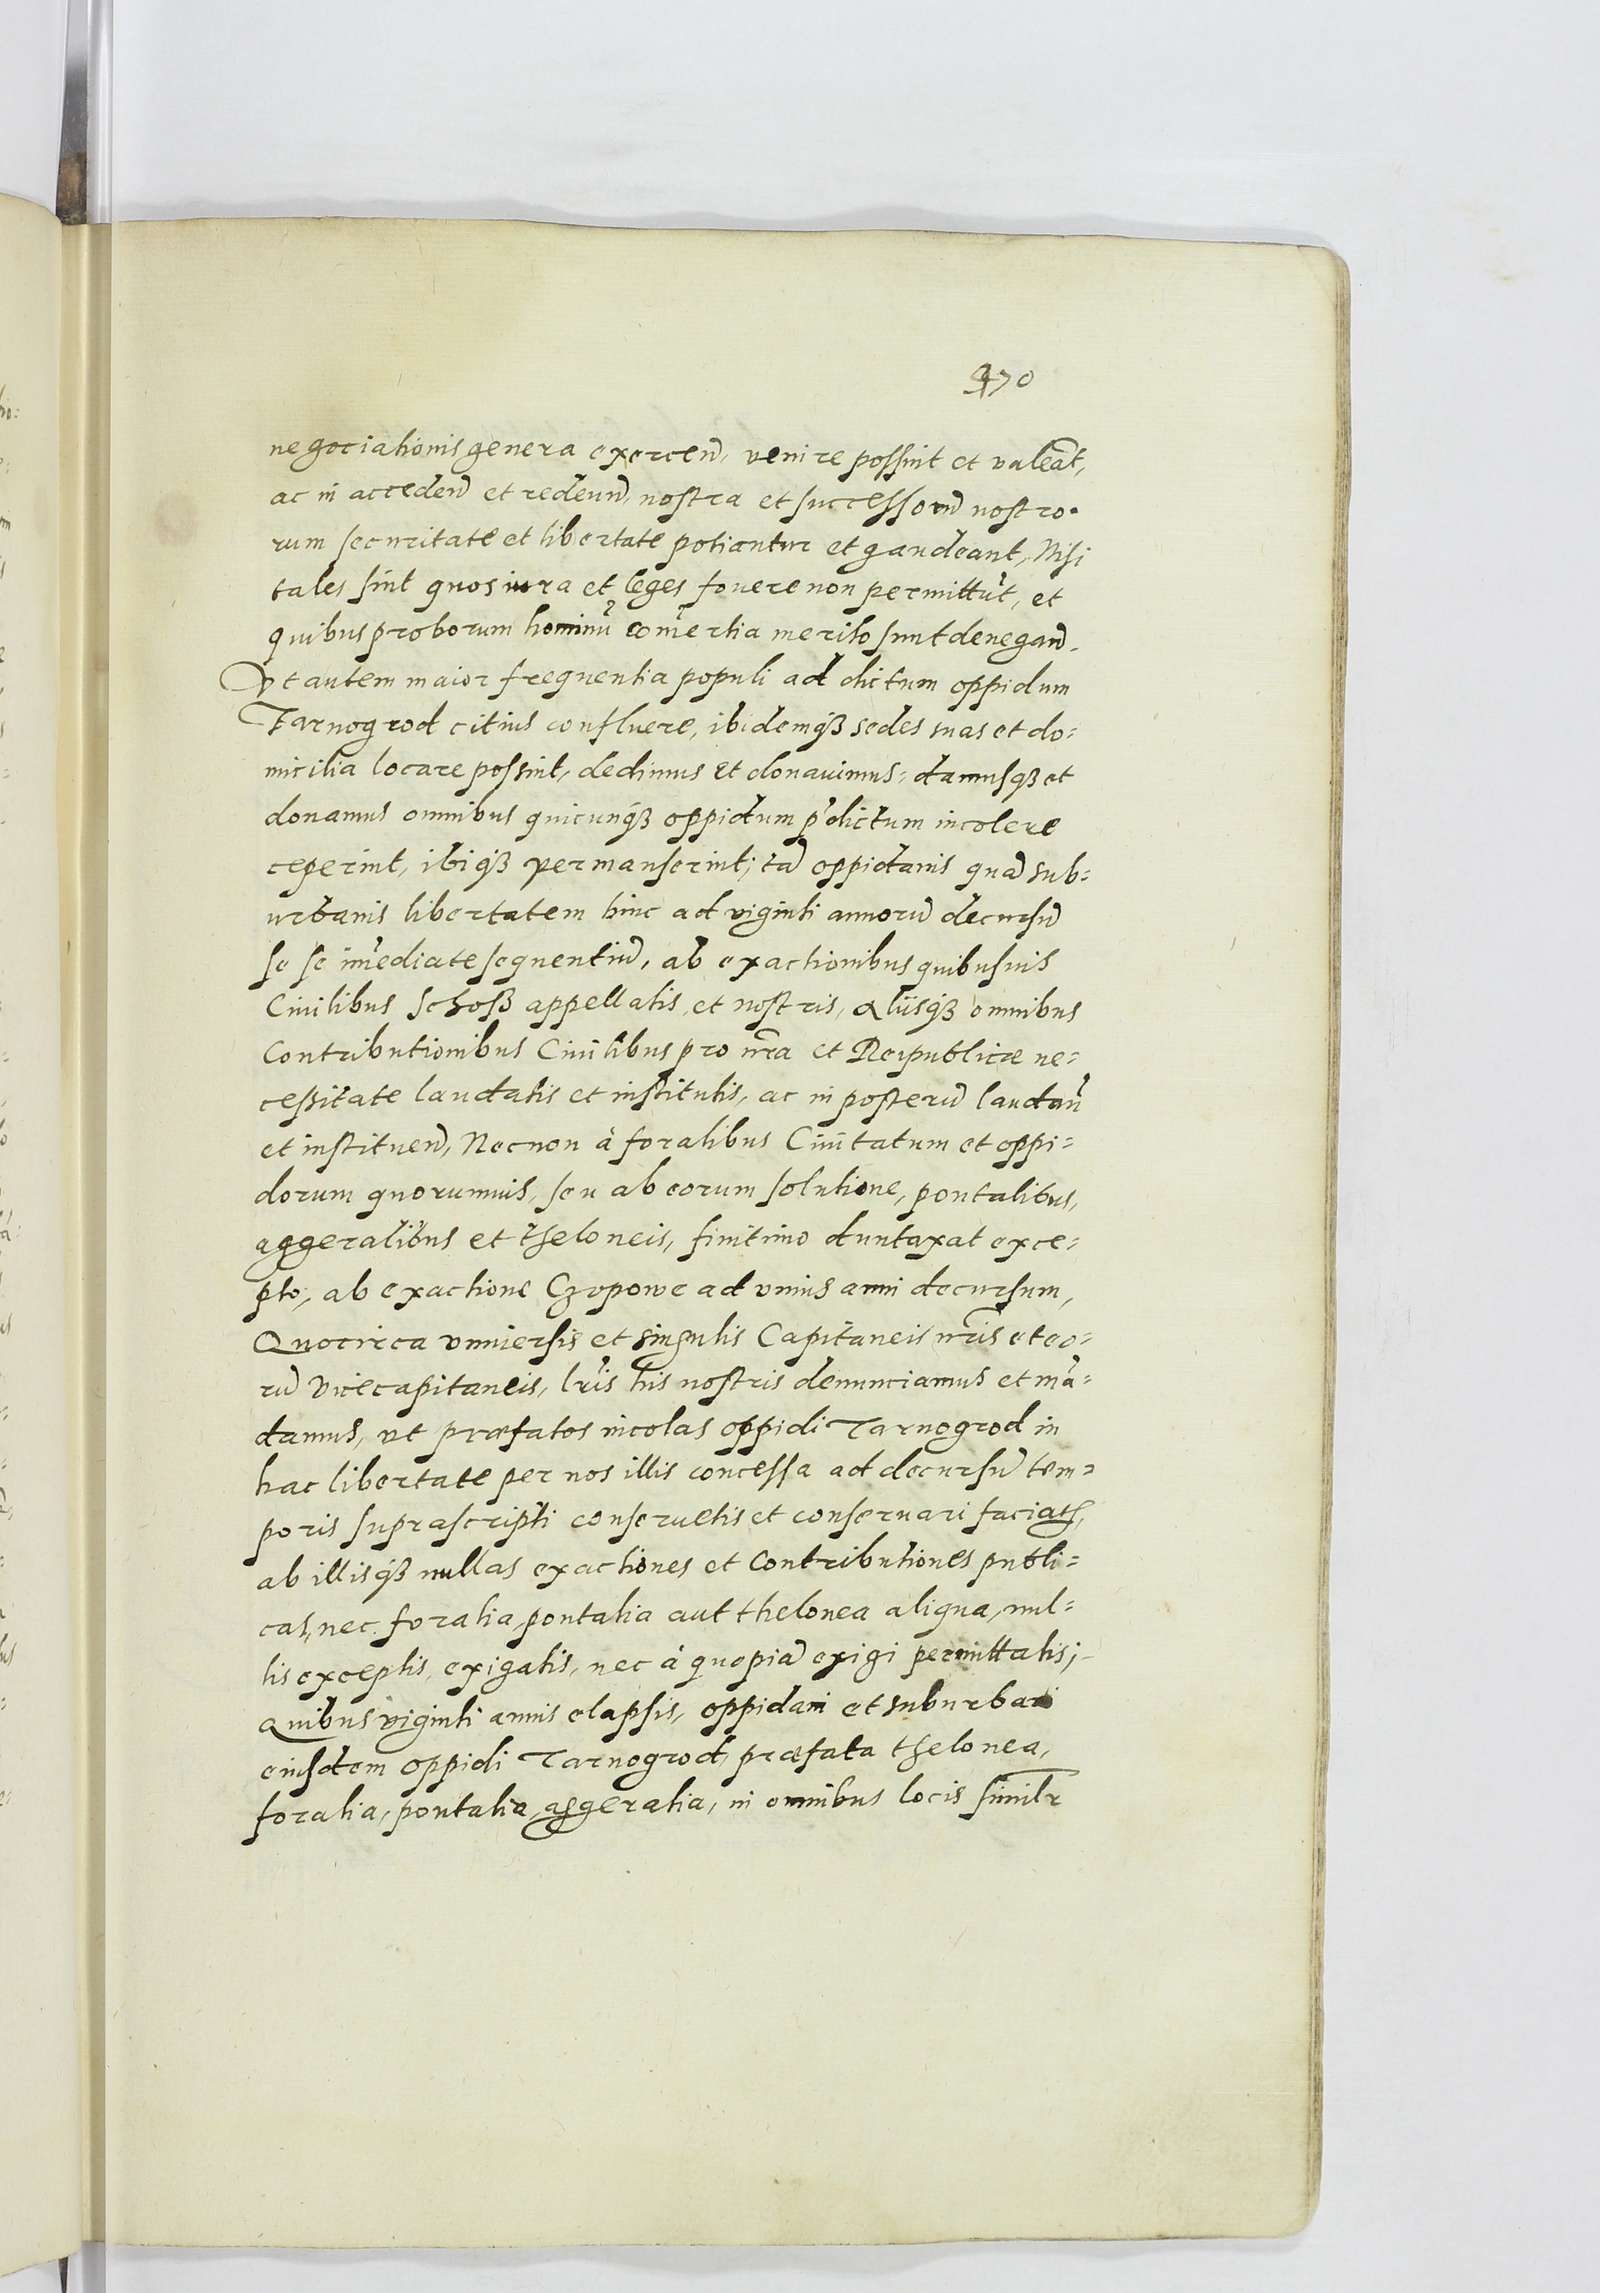 470
negociationis genera exercen̄, venire possint et valeāt,
ac in acceden̄ et redeun̄, nostra et successorū nostro-
rum securitate et libertate potiantur et gaudeant, Nisi
tales sint quos iura et leges fovere non permittūt, et
quibus proborum hominū com̄ertia merito sunt denegan̄.
Vt autem maior frequentia populi ad dictum oppidum
Tarnogrod citius confluere, ibidemq̃ sedes suas et do=
micilia locare possint, dedimus et donauimus, damusq̃ et
donamus omnibus quicunq̃ oppidum p̄dictum incolere
ceperint, ibiq̃ permanserint; tā oppidanis quā sub=
urbanis libertatem hinc ad viginti annorū decursū
se se im̄ediate sequentiū, ab exactionibus quibusuis
Ciuilibus Schoss appellatis, et nostris, aliisq̃ omnibus
Contributionibus Ciuilibus pro n̄ra et Reipublicæ ne=
cessitate laudatis et institutis, ac in posterū laudan̄
et instituen̄, Necnon à foralibus Ciuitatum et oppi=
dorum quorumuis, seu ab eorum solutione, pontalibus,
aggeralibus et theloneis, finitimo duntaxat exce=
pto, ab exactione Czopowe ad vnius anni decursum,
Quocirca vniuersis et singulis Capitaneis n̄ris et eo=
rū Vicecapitaneis, l̄ris his nostris denunciamus et mā=
damus, vt præfatos incolas oppidi Tarnogrod in
hac libertate per nos illis concessa ad decursū tem=
poris suprascripti conseruetis et conseruari faciatis,
ab illisq̃ nullas exactiones et Contributiones publi=
cas, nec foralia, pontalia aut thelonea aliqua, nul=
lis exceptis, exigatis, nec à quopiā exigi permittatis;
Quibus viginti annis elapsis, oppidani et suburbani
eiusdem oppidi Tarnogrod, præfata thelonea,
foralia, pontalia, aggeralia, in omnibus locis similr̄